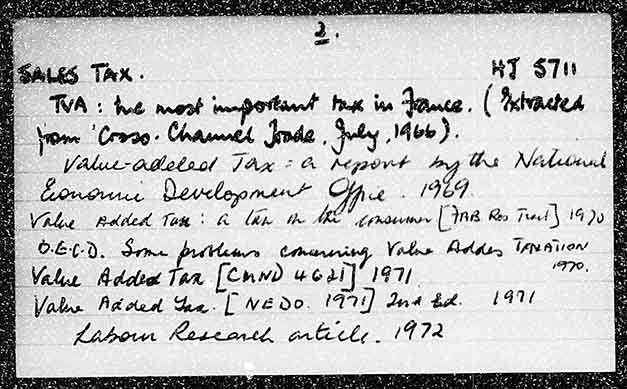 2.
SALES TAX. HJ 5711
TVA: the most important tax in France. (Extracted
from 'Cross-Channel Trade, July, 1966).
Value-added Tax: a report by the National
Economic Development Office. 1969
Value Added Tax: a tax on the consumer [FAB Res Trust] 1970
O.E.C.D. Some problems concerning Value Added TAXATION
1970.
Value Added Tax [CMND 4621] 1971
Value Added Tax. [NEDO. 1971] 2nd Ed. 1971
Labour Research article. 1972